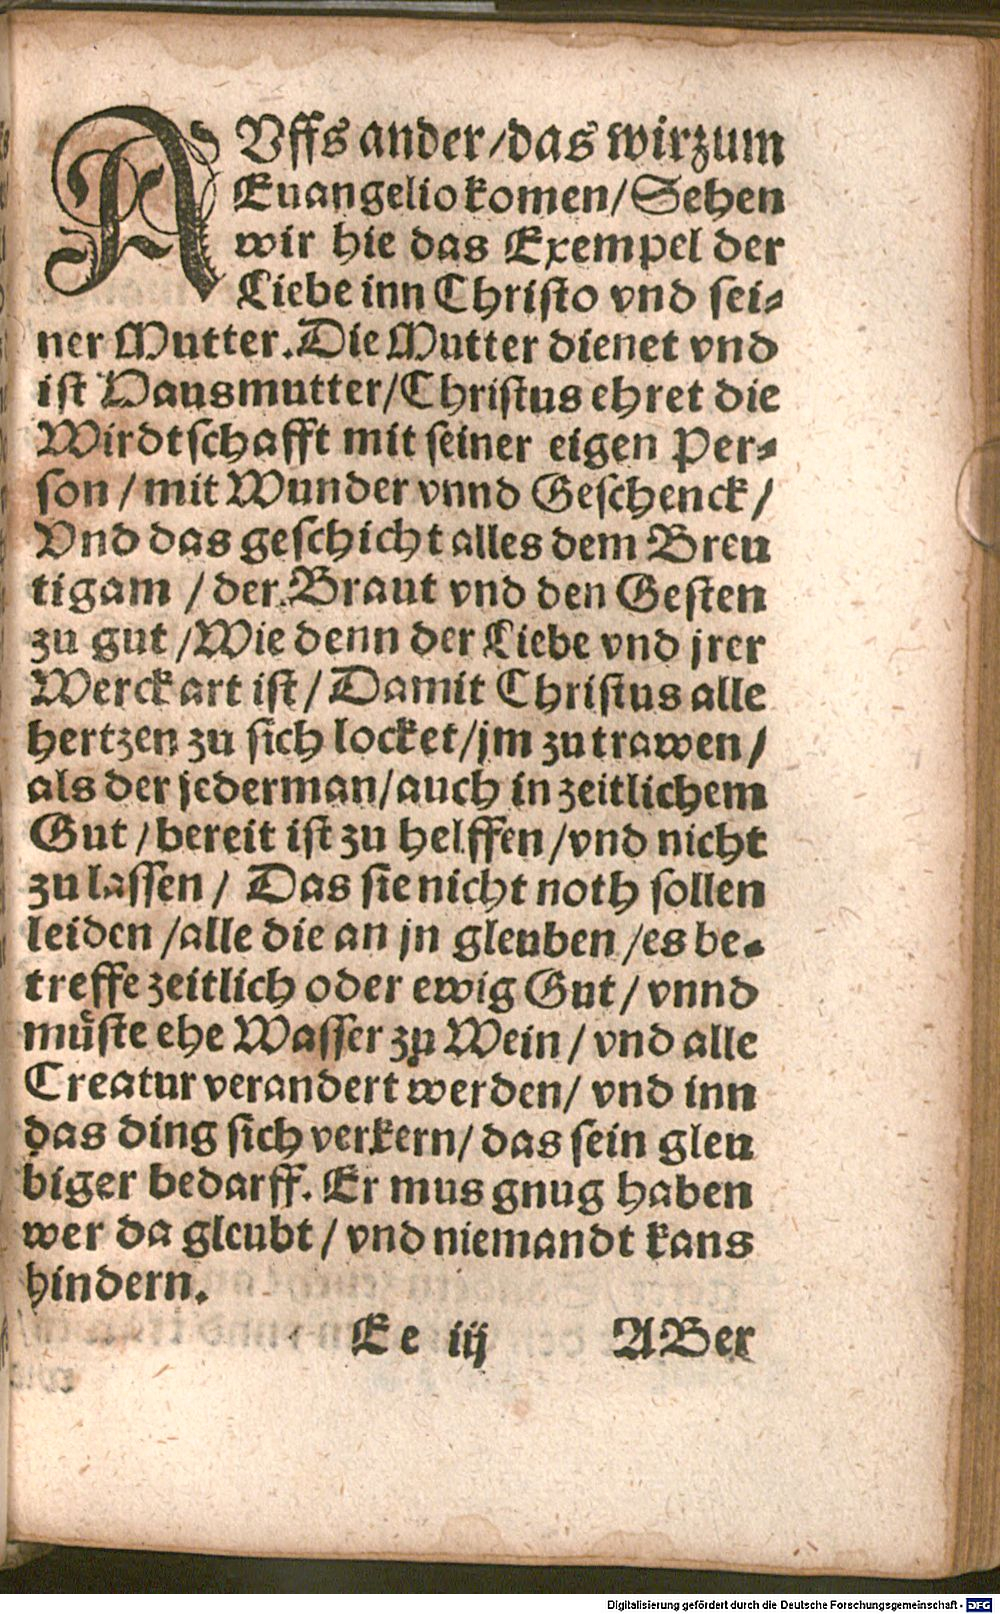 AVffs ander/das wir zum
Euangelio komen/Sehen
wir hie das Exempel der
Liebe inn Christo vnd sei-
ner Mutter. Die Mutter dienet vnd
ist Hausmutter/Christus ehret die
Wirdtschafft mit seiner eigen Per-
son/mit Wunder vnnd Geschenck/
Vnd das geschicht alles dem Breu
tigam/der Braut vnd den Gesten
zu gut/Wie denn der Liebe vnd jrer
Werck art ist/Damit Christus alle
hertzen zu sich locket/jm zu trawen/
als der jederman/auch in zeitlichem
Gut/bereit ist zu helffen/vnd nicht
zu lassen/Das sie nicht noth sollen
leiden/alle die an jn gleuben/es be-
treffe zeitlich oder ewig Gut/vnnd
müste ehe Wasser zu Wein/vnd alle
Creatur verandert werden/vnd inn
das ding sich verkern/das sein gleu
biger bedarff. Er mus gnug haben
wer da gleubt/vnd niemandt kans
hindern.
Ee iij ABer
Digitalisierung gefördert durch die Deutsche Forschungsgemeinschaft - DFG